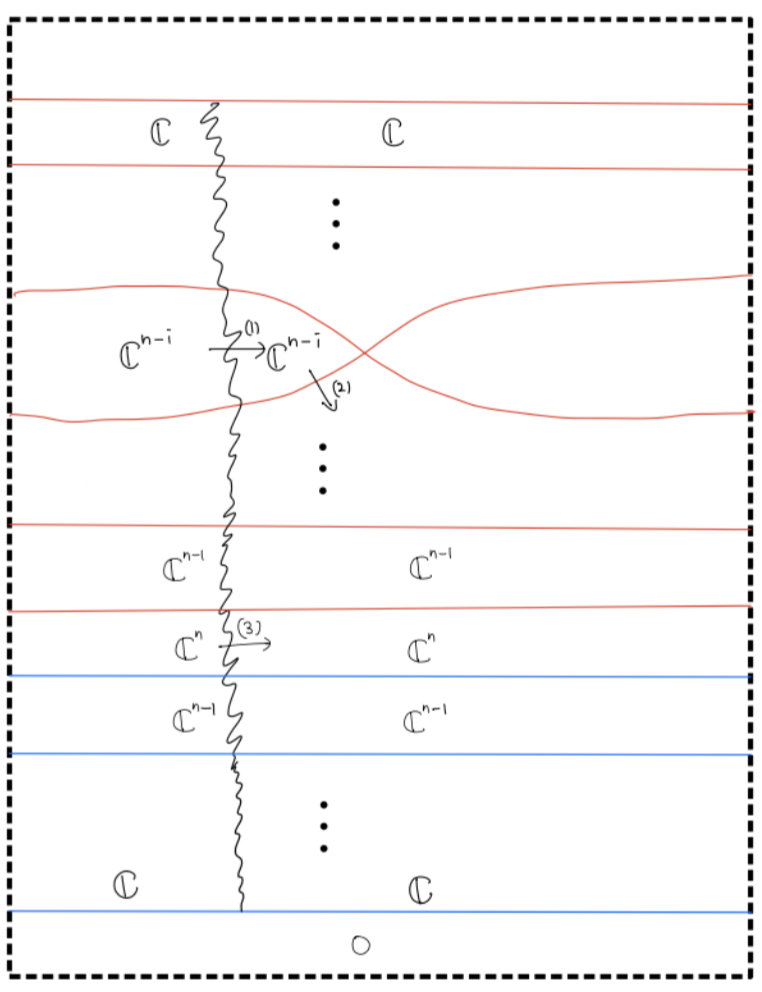 ℂ ℂ
⋮
(1)
ℂⁿ⁻ⁱ ℂⁿ⁻ⁱ
(2)
⋮
ℂⁿ⁻¹ ℂⁿ⁻¹
(3)
ℂⁿ ℂⁿ
ℂⁿ⁻¹ ℂⁿ⁻¹
⋮
ℂ ℂ
0